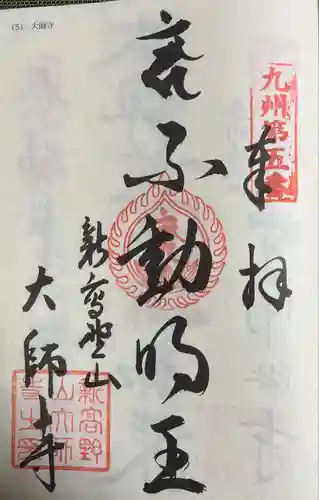 (5) 大師寺
九州第五番
奉拝
不動明王
新高野山
大師寺
新高野
山大師
寺之印